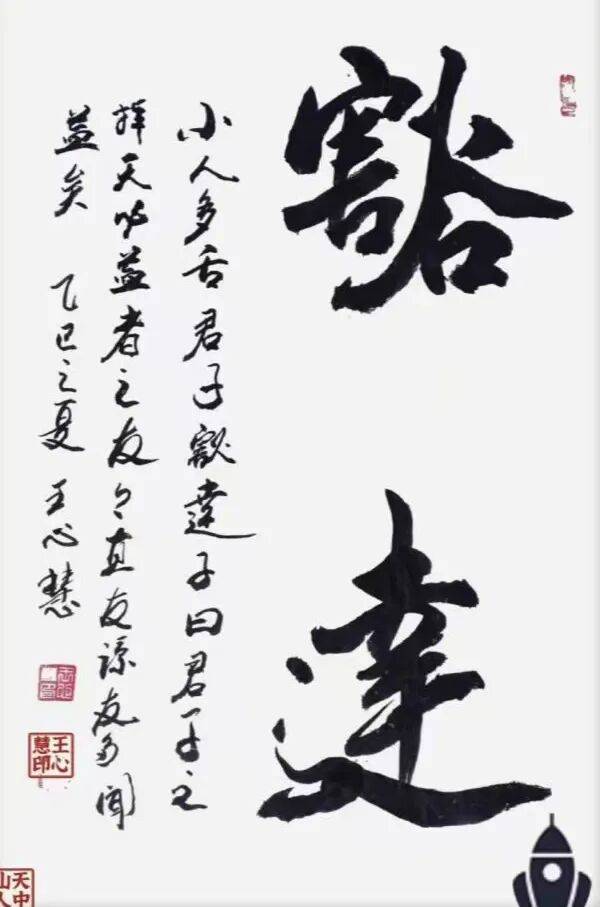 豁達
小人多舌君子豁達子曰君子之
益者之友々直友諒友多聞
益矣 乙巳之夏 王心慧
王心慧印
天中山人